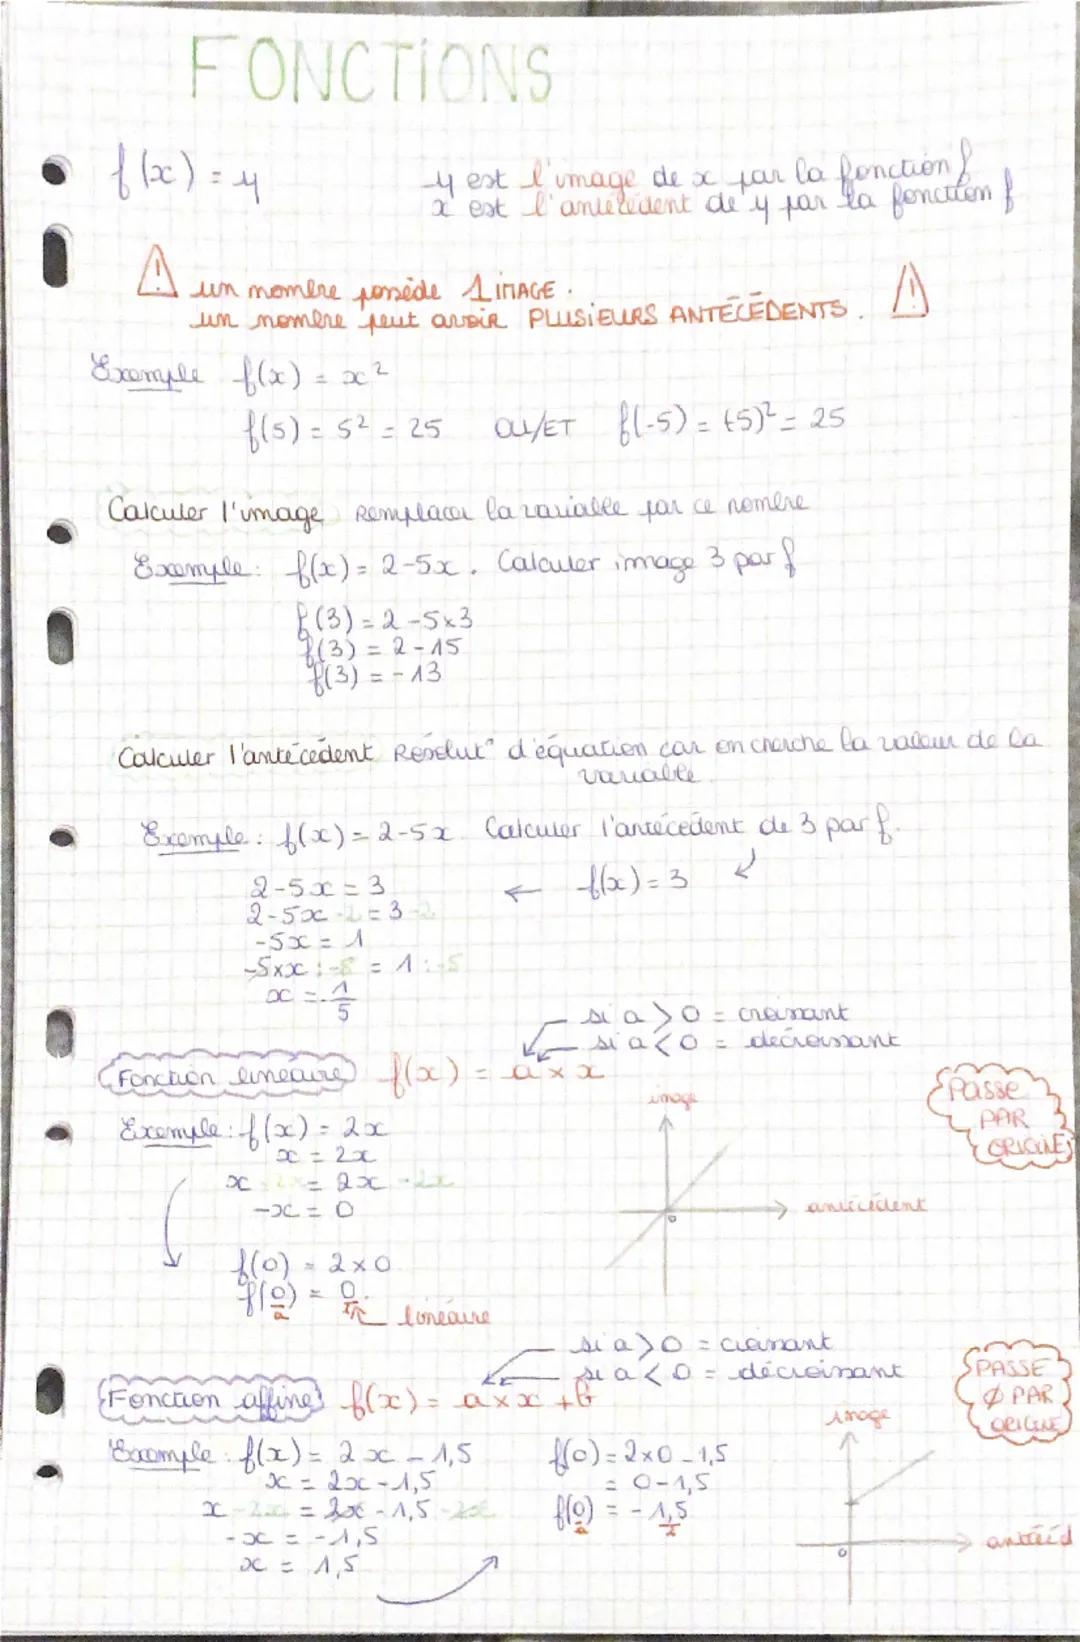 FONCTIONS
f(x) = y
y est l'image de x par la fonction f
x est l'antécédent de y par la fonction f
⚠ un nombre possède 1 IMAGE.
un nombre peut avoir PLUSIEURS ANTÉCÉDENTS. ⚠
Exemple f(x) = x²
f(5) = 5² = 25 OU/ET f(-5) = (-5)² = 25
Calculer l'image Remplacer la variable par ce nombre
Exemple: f(x) = 2-5x. Calculer image 3 par f
f(3) = 2-5×3
f(3) = 2-15
f(3) = -13
Calculer l'antécédent Résolut° d'équation car on cherche la valeur de la
variable.
Exemple: f(x) = 2-5x Calculer l'antécédent de 3 par f.
2-5x = 3 ← f(x) = 3
2-5x -2 = 3 -2
-5x = 1
-5×x : -5 = 1 : -5
x = -1/5
si a > 0 = croissant
si a < 0 = décroissant
Fonction linéaire f(x) = a × x
PASSE
PAR
ORIGINE
image
Exemple: f(x) = 2x
x = 2x
x -2x = 2x -2x
-x = 0
antécédent
0
f(0) = 2×0
f(0) = 0.
a I linéaire
si a > 0 = croissant
si a < 0 = décroissant
Fonction affine f(x) = a × x + b
PASSE
∅ PAR
ORIGINE
image
Exemple: f(x) = 2x - 1,5 f(0) = 2×0 - 1,5
x = 2x - 1,5 = 0 - 1,5
x -2x = 2x - 1,5 -2x f(0) = -1,5
a I
-x = -1,5
x = 1,5
antécéd
0